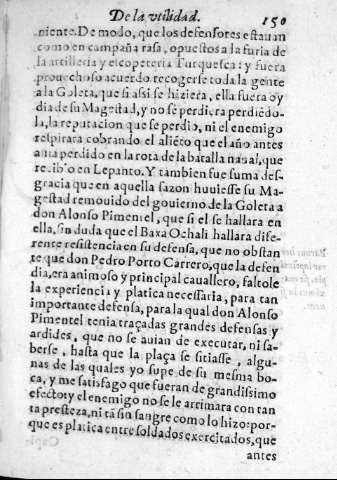 De la vtilidad. 150
niente. De modo, que los defensores estauan
como en campaña rasa, opuestos a la furia de
la artilleria y escopeteria Turquesca: y fuera
prouechoso acuerdo recogerse toda la gente
a la Goleta, que si assi se hiziera, ella fuera oy
dia de su Magestad, y no se perdiera perdiēdo-
la, la reputacion que se perdio, ni el enemigo
respirara cobrando el aliēto que el año antes
auia perdido en la rota de la batalla naual, que
recibio en Lepanto. Y tambien fue suma des-
gracia que en aquella sazon huuiesse su Ma-
gestad remouido del gouierno de la Goleta a
don Alonso Pimentel, que si el se hallara en
ella, sin duda que el Baxa Ochali hallara dife-
rente resistencia en su defensa, que no obstan
te que don Pedro Porto Carrero, que la defen
dia, era animoso y principal cauallero, faltole
la experiencia y platica necessaria, para tan
importante defensa, para la qual don Alonso
Pimentel tenia traçadas grandes defensas y
ardides, que no se auian de executar, ni sa-
berse, hasta que la plaça se sitiasse, algu-
nas de las quales yo supe de su mesma bo-
ca, y me satisfago que fueran de grandissimo
efecto: y el enemigo no se le arrimara con tan
ta presteza, ni tā sin sangre como lo hizo: por-
que es platica entre soldados exercitados, que
antes